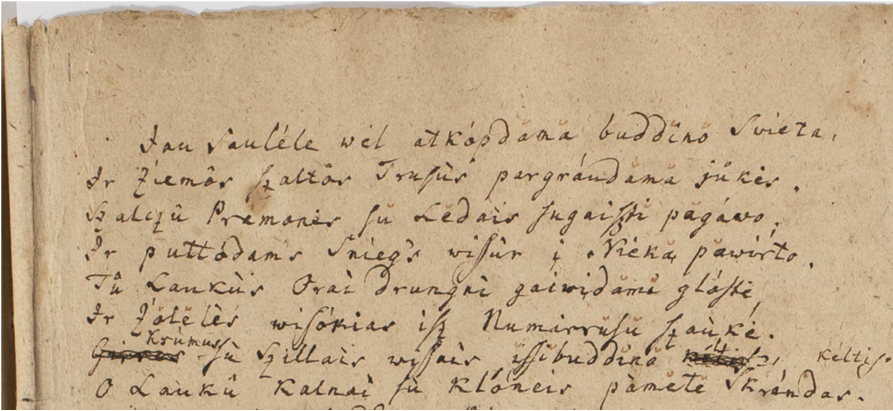 Jau Sauléle wėl atkópdama buddino Swieta,
Ir Źiemôs ſzaltôs Truſùs pargráudama jůkės.
Szalcźû Pramonės ſu Lėdais ſugaiſzti pagáwo,
Ir puttódam's Sniegs wiſſùr į Nieką pawirto.
Tů Laukùs Orai drungni gaiwįdami glóſtė
Ir Źolelès wiſókias iſz Numirruſû ſzaùkė.
Krumus ſù Szillais wiſſais iſſibuddino kéltis.
O Laukû Kalnai ſù Klóneis pamete Skrándas.